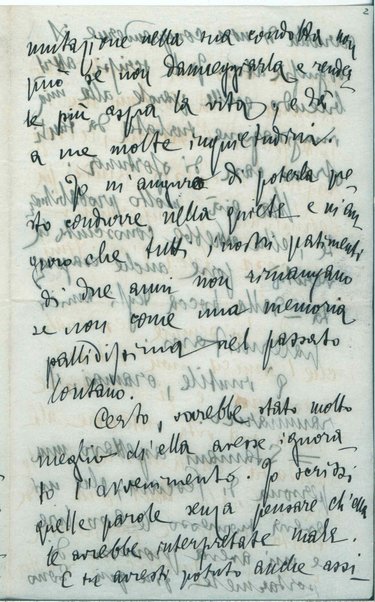 2
mutazione nella sua condotta non
può se non danneggiarla e render-
le più aspra la vita, e dà
a me molte inquietudini.
Io m'auguro di poterla pre-
sto condurre nella quiete e m'au-
guro che tutti i nostri patimenti
di due anni non rimangano
se non come una memoria
pallidissima nel passato
lontano.
Certo, sarebbe stato molto
meglio ch'ella avesse ignora-
to l'avvenimento. Io scrissi
quelle parole senza pensare ch'ella
le avrebbe interpretate male.
E tu avresti potuto anche assi-